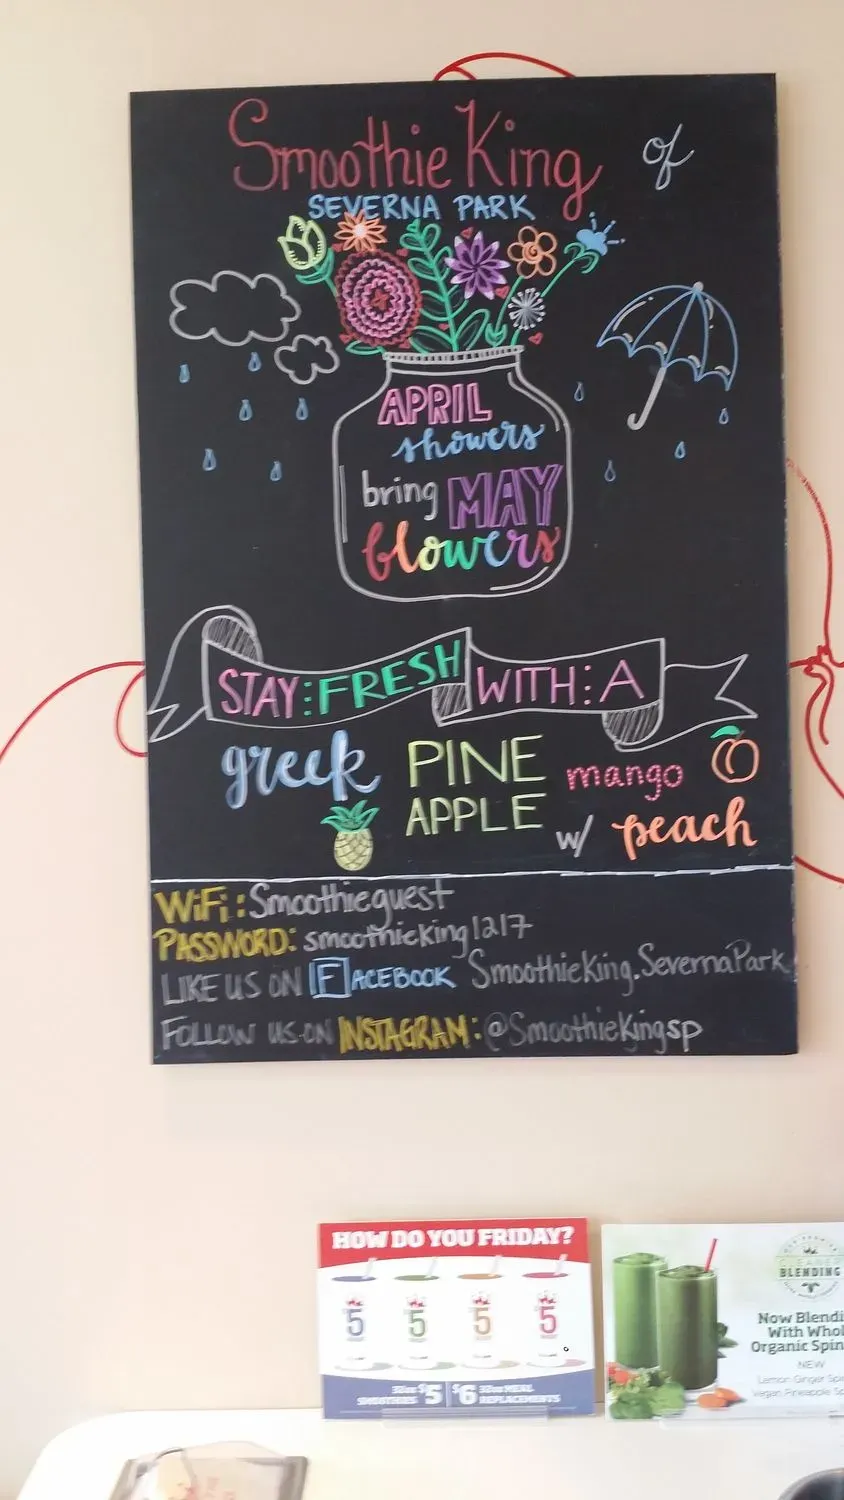 Smoothie King of
SEVERNA PARK
APRIL
showers
bring MAY
flowers
STAY : FRESH WITH : A
greek PINE APPLE mango
w/ peach
WiFi: Smoothieguest
PASSWORD: smoothieking1217
LIKE US ON FACEBOOK SmoothieKing.SevernaPark
FOLLOW US ON INSTAGRAM: @SmoothieKingsp
HOW DO YOU FRIDAY?
5 5 5 5
32oz $5 SMOOTHIES
$6 32oz MEAL REPLACEMENTS
CLEANER
BLENDING
Now Blendi
With Whol
Organic Spin
NEW
Lemon Ginger Spi
Vegan Pineapple Sp